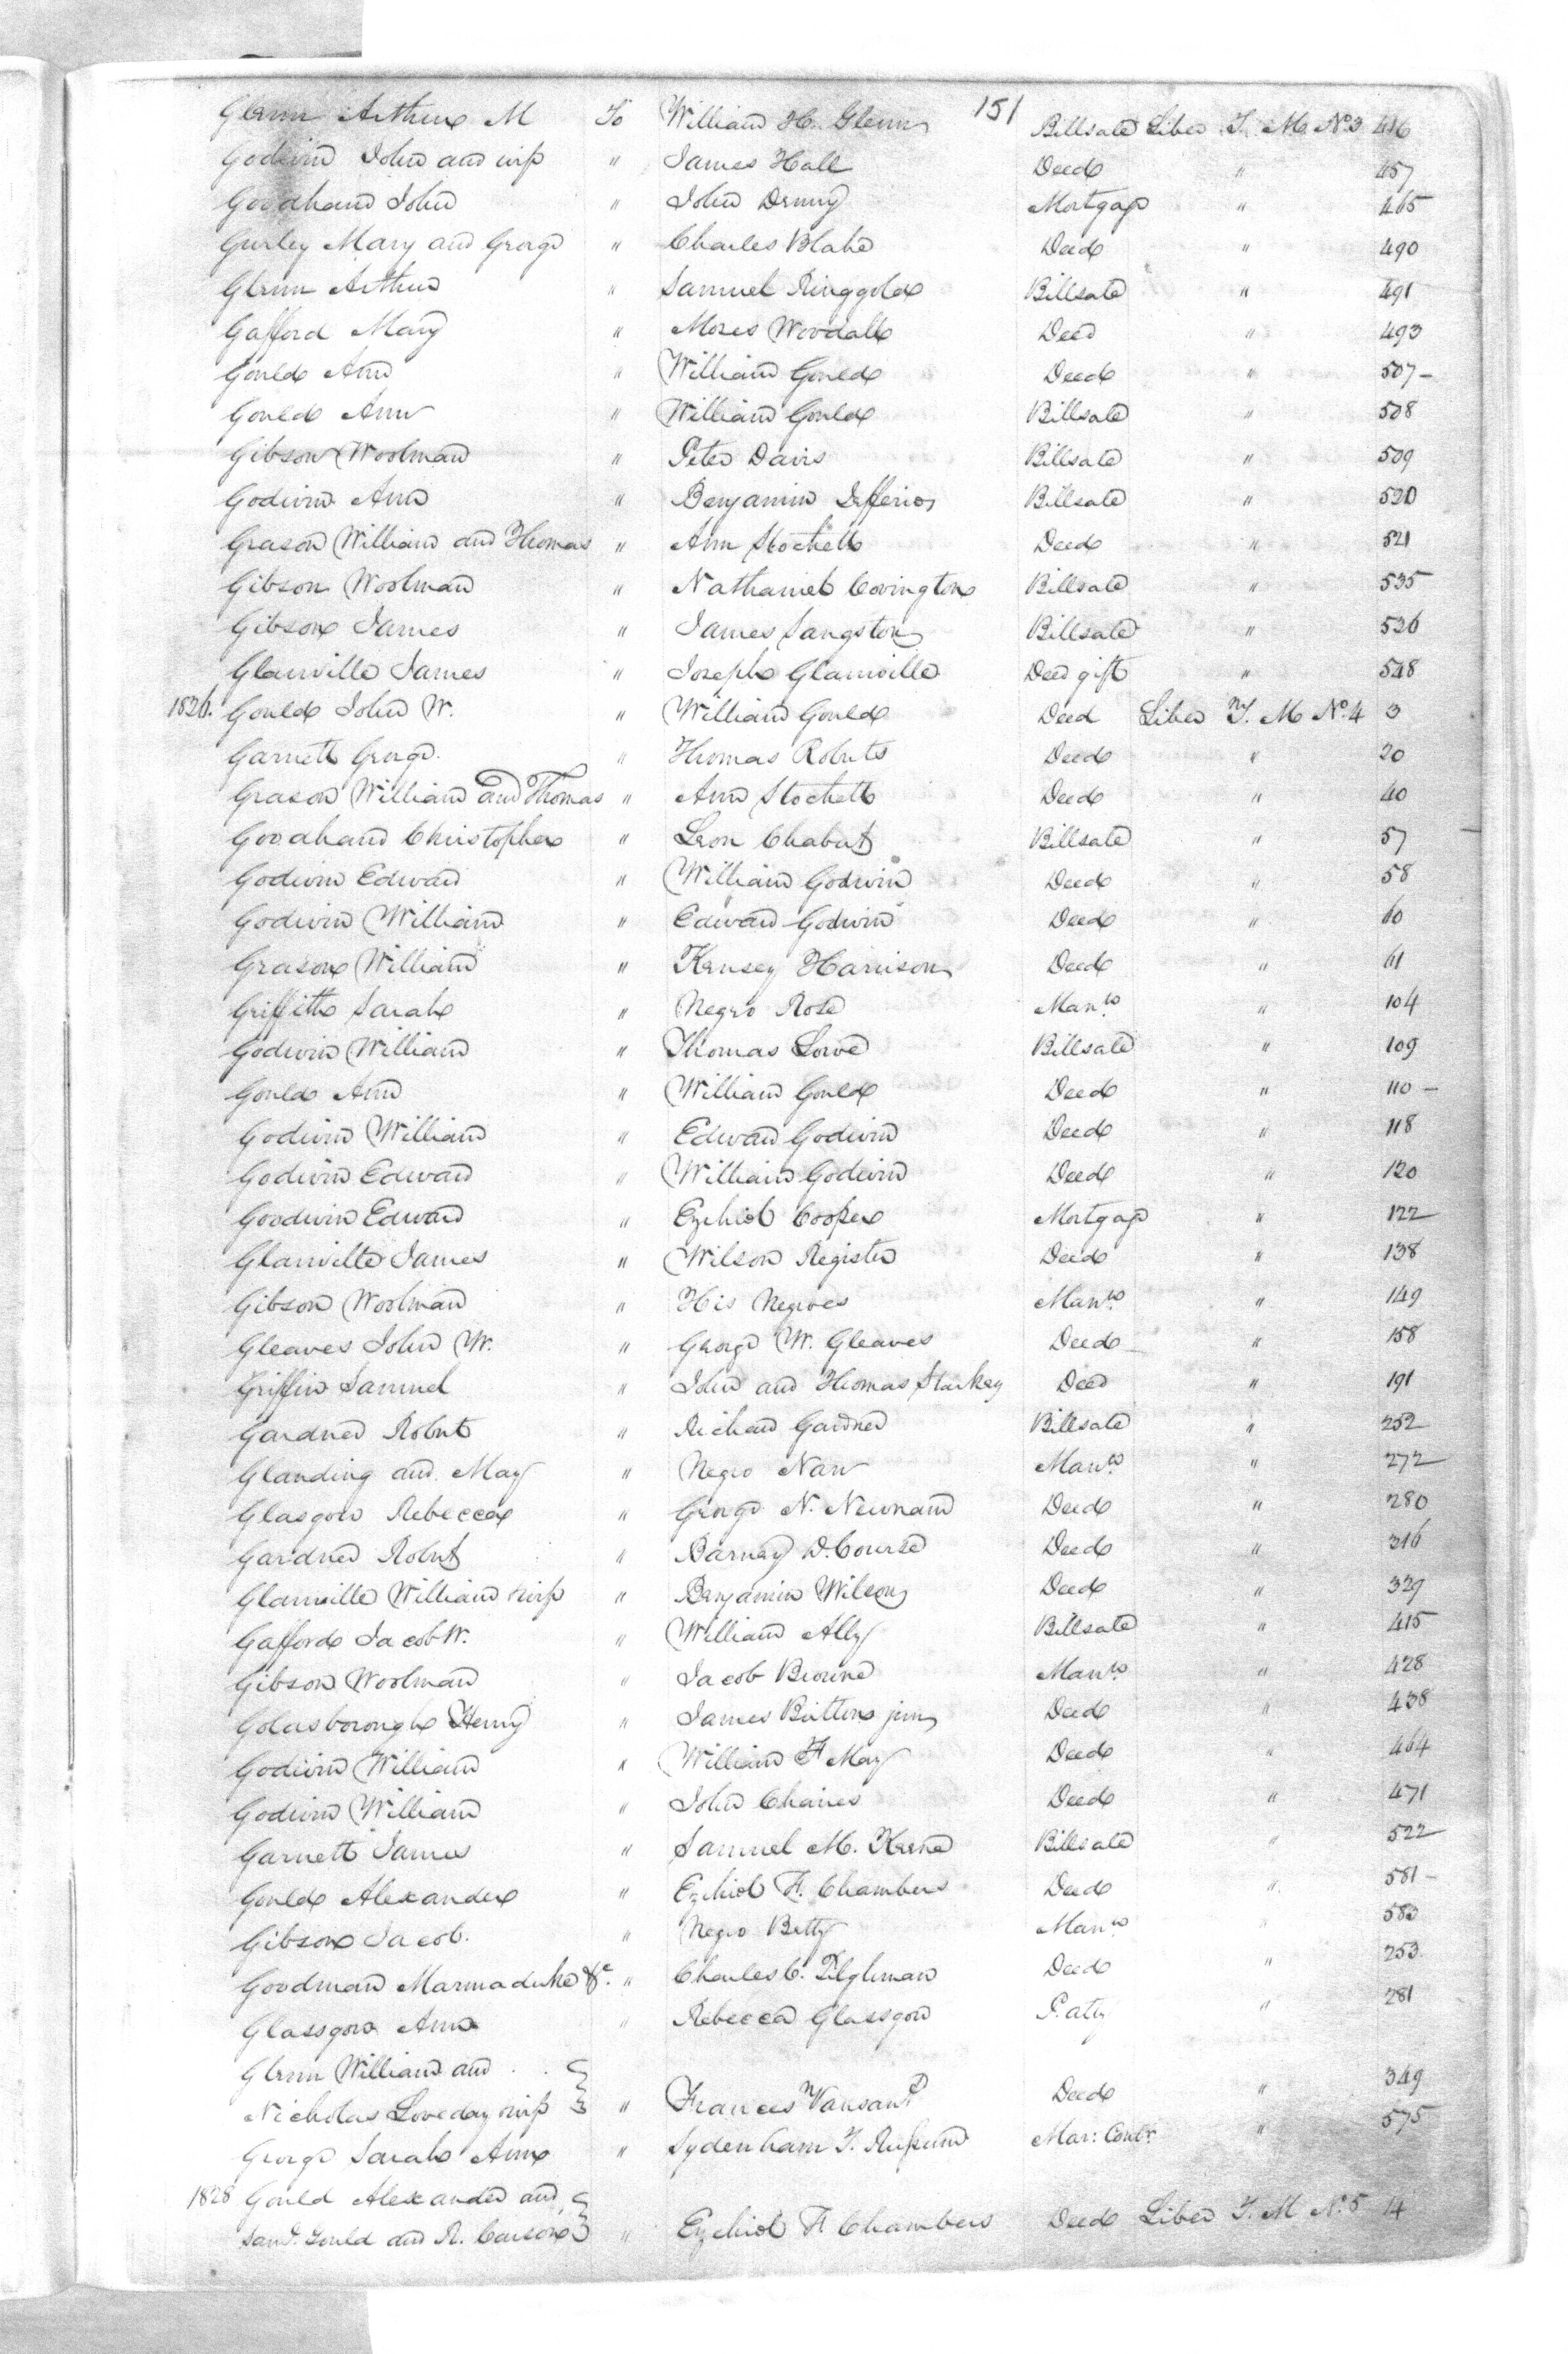 151
Glenn Arthur M To William H. Glenn Billsale Liber T. M. No. 3 416
Godwin John and wife " James Hall Deed " 457
Goodhand John " John Denny Mortgage " 465
Gurley Mary and George " Charles Blake Deed " 490
Glenn Arthur " Samuel Ringgold Billsale " 491
Gafford Mary " Moses Woodall Deed " 493
Gould Ann " William Gould Deed " 507 –
Gould Ann " William Gould Billsale " 508
Gibson Woolman " Peter Davis Billsale " 509
Godwin Ann " Benjamin Jefferies Billsale " 520
Grason William and Thomas " Ann Stockett Deed " 521
Gibson Woolman " Nathaniel Covington Billsale " 535
Gibson James " James Sangston Billsale " 536
Glanville James " Joseph Glanville Deed gift " 548
1826. Gould John W. " William Gould Deed Liber T. M No. 4 3
Garnett George. " Thomas Roberts Deed " 20
Grason William and Thomas " Ann Stockett Deed " 40
Goodhand Christopher " Leon Chabut Billsale " 57
Godwin Edward " William Godwin Deed " 58
Godwin William " Edward Godwin Deed " 60
Grason William " Kensey Harrison Deed " 61
Griffith Sarah " Negro Rose Man.n " 104
Godwin William " Thomas Lowe Billsale " 109
Gould Ann " William Gould Deed " 110 –
Godwin William " Edward Godwin Deed " 118
Godwin Edward " William Godwin Deed " 120
Goodwin Edward " Ezekiel Cooper Mortgage " 122
Glanville James " Wilson Register Deed " 138
Gibson Woolman " His Negroes Man.n " 149
Gleaves John W. " George W. Gleaves Deed " 158
Griffin Samuel " John and Thomas Starkey Deed " 191
Gardner Robert " Richard Gardner Billsale " 252
Glanding and May " Negro Nan Man.n " 272
Glasgow Rebecca " George N. Newnam Deed " 280
Gardner Robert " Barney D. Course Deed " 316
Glanville William & wife " Benjamin Wilson Deed " 329
Gafford Jacob W. " William Ally Billsale " 415
Gibson Woolman " Jacob Browne Man.n " 428
Goldsborough Henry " James Button jun Deed " 438
Godwin William " William F May Deed " 464
Godwin William " John Chaires Deed " 471
Garnett James " Samuel M. Keene Billsale " 522
Gould Alexander " Ezekiel F. Chambers Deed " 581 –
Gibson Jacob. " Negro Betty Man.n " 583
Goodman Marmaduke &c. " Charles C. Tilghman Deed " 253
Glassgow Ann " Rebecca Glassgow P. aty " 281
Glenn William and
Nicholas Loveday & wife " Frances Vansant Deed " 349
George Sarah Ann " Sydenham T. Mar: Contr. " 575
1828 Gould Alexander and
Saml. Gould and R. Carson " Ezekiel F. Chambers Deed Liber T. M No. 5 14